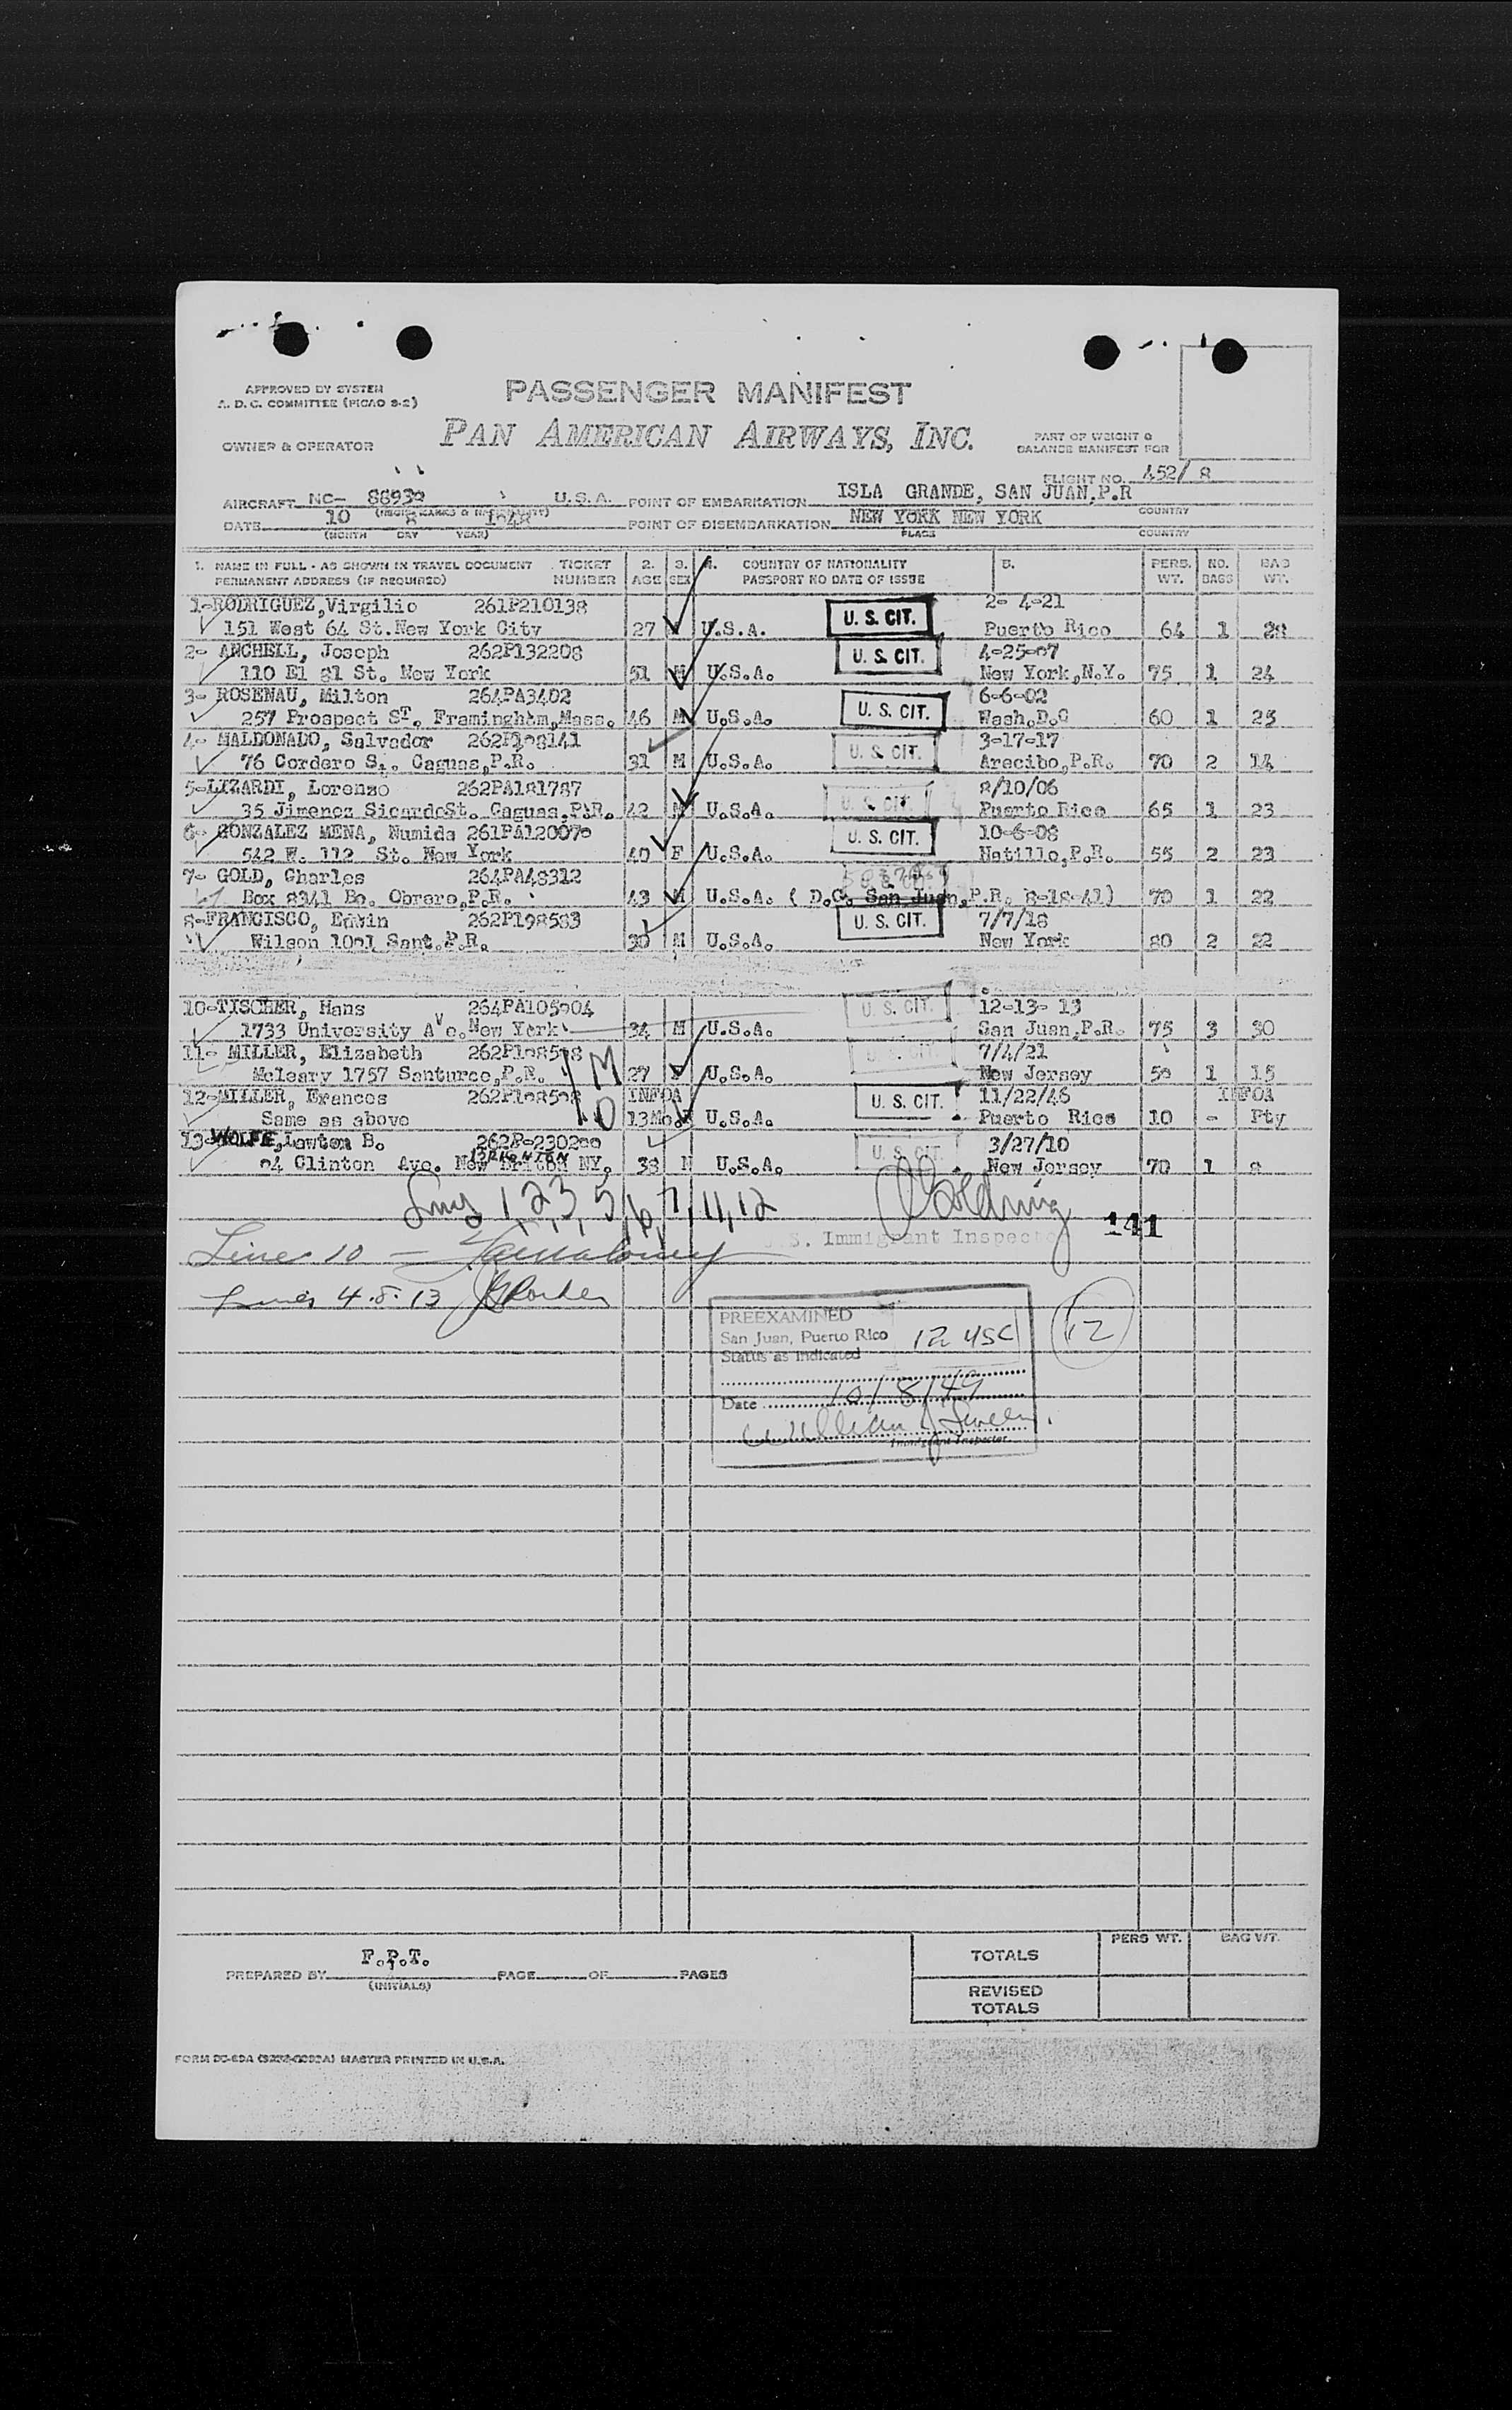 APPROVED BY SYSTEM
A. D. C. COMMITTEE (PICAO 3-2)
PASSENGER MANIFEST
OWNER & OPERATOR
PAN AMERICAN AIRWAYS, INC.
PART OF WEIGHT &
BALANCE MANIFEST FOR
FLIGHT NO. 452/ 8
AIRCRAFT NC- 88930 U.S.A. POINT OF EMBARKATION ISLA GRANDE, SAN JUAN,P.R
COUNTRY
DATE 10 8 1948 POINT OF DISEMBARKATION NEW YORK NEW YORK
(MONTH DAY YEAR) PLACE COUNTRY
1. NAME IN FULL - AS SHOWN IN TRAVEL DOCUMENT TICKET 2. 3. 4. COUNTRY OF NATIONALITY 5. PERS. NO. BAG
PERMANENT ADDRESS (IF REQUIRED) NUMBER AGE SEX PASSPORT NO DATE OF ISSUE WT. BAGS WT.
1-RODRIGUEZ,Virgilio 261P210138 U. S. CIT. 2- 4-21
151 West 64 St.New York City 27 U.S.A. Puerto Rico 64 1 28
2- ANCHELL, Joseph 262P132208 U. S. CIT. 4-25-07
110 El 81 St. New York 51 M U.S.A. New York,N.Y. 75 1 24
3- ROSENAU, Milton 264PA3402 U. S. CIT. 6-6-02
257 Prospect ST. Framingham,Mass. 46 M U.S.A. Wash.D.C 60 1 25
4- MALDONADO, Salvador 262P198141 U. S. CIT. 3-17-17
76 Cordero S. Caguas,P.R. 31 M U.S.A. Arecibo,P.R. 70 2 14
5-LIZARDI, Lorenzo 262PA181787 U. S. CIT. 8/10/06
35 Jimenez SicardoSt. Caguas,P.R. 42 M U.S.A. Puerto Rico 65 1 23
6- GONZALEZ MENA, Numida 261PA120070 U. S. CIT. 10-6-08
542 W. 112 St. New York 40 F U.S.A. Hatillo,P.R. 55 2 23
7- GOLD, Charles 264PA48312
Box 8341 Bo. Obrero,P.R. 43 M U.S.A. ( D.C. San Juan,P.R. 8-18-41) 70 1 22
8-FRANCISCO, Edwin 262P198583 U. S. CIT. 7/7/18
Wilson 1001 Sant.P.R. 30 M U.S.A. New York 80 2 22
10-TISCHER, Hans 264PA105904 U. S. CIT. 12-13- 13
1733 University Ave.New York 34 M U.S.A. San Juan,P.R. 75 3 30
11- MILLER, Elizabeth 262P198598 U. S. CIT. 7/4/21
Mcleary 1757 Santurce,P.R. 27 U.S.A. New Jersey 50 1 15
12-MILLER, Frances 262P198598 INFOA U. S. CIT. 11/22/46 INFOA
Same as above 13Mo. U.S.A. Puerto Rico 10 - Pty
13-WOLFE,Lawton B. 262P-230200 U. S. CIT. 3/27/10
94 Clinton Ave. New NY. 38 M U.S.A. New Jersey 70 1 8
1, 2, 3, 5, 6, 7, 11, 12
U.S. Immigrant Inspector 141
Line 10 —
Lines 4. 8. 13
PREEXAMINED
San Juan, Puerto Rico 12 USC 12
Status as indicated
Date 10/8/49
Immigrant Inspector
PREPARED BY F.P.T. PAGE OF PAGES
(INITIALS)
PERS WT. BAG WT.
TOTALS
REVISED
TOTALS
MASTER PRINTED IN U.S.A.